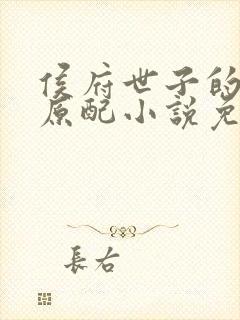 侯府世子的
原配小說免
長右